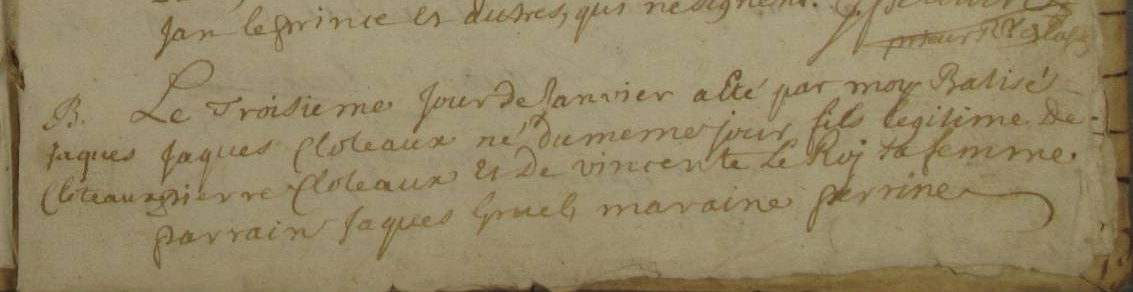 Jan le prince et autres, qui ne signent.
prieur
B. Le Troisieme Jour de Janvier a Eté par moy Batisé
Jaques Jaques Cloteaux né du meme jour fils legitime de
Cloteaux pierre Cloteaux Et De vincente Le Roy sa femme
parrain Jaques Gruel, maraine perrine